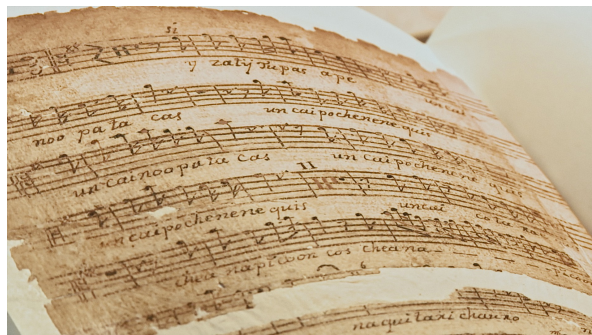 si
y zatÿ rupas ape
uncai
noo pata cas un cai pochenene quis
un cai noo pata cas un caipochenene quis
II
un cai pochenene quis uncai
chea napicoon cos cheana
naquitaxi channo